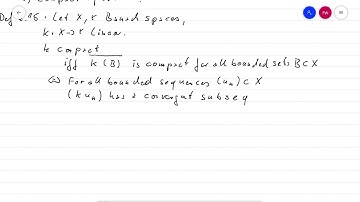 Def 2.16 · Let X, Y Banach spaces,
K: X → Y linear.
K compact
iff K(B) is compact for all bounded sets B ⊂ X
⇔ For all bounded sequences (u_n) ⊂ X
(K u_n) has a convergent subseq
PW